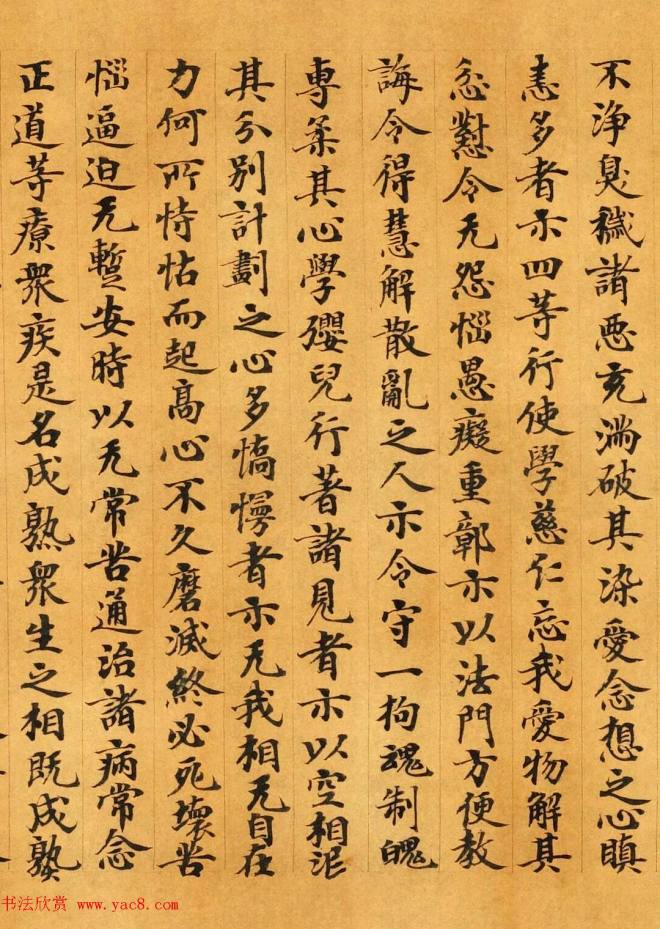 不淨臭穢諸惡充滿破其染愛念想之心瞋
恚多者示四等行使學慈仁忘我愛物解其
忿懟令无怨惱愚癡重鄣示以法門方便教
誨令得慧解散亂之人示令守一拘魂制魄
專柔其心學孾兒行著諸見者示以空相泯
其分別計劃之心多憍慢者示无我相无自在
力何所恃怙而起高心不久磨滅終必死壞苦
惱逼迫无蹔安時以无常苦通治諸病常念
正道等療衆疾是名成熟衆生之相既成熟
书法欣赏 www.yac8.com